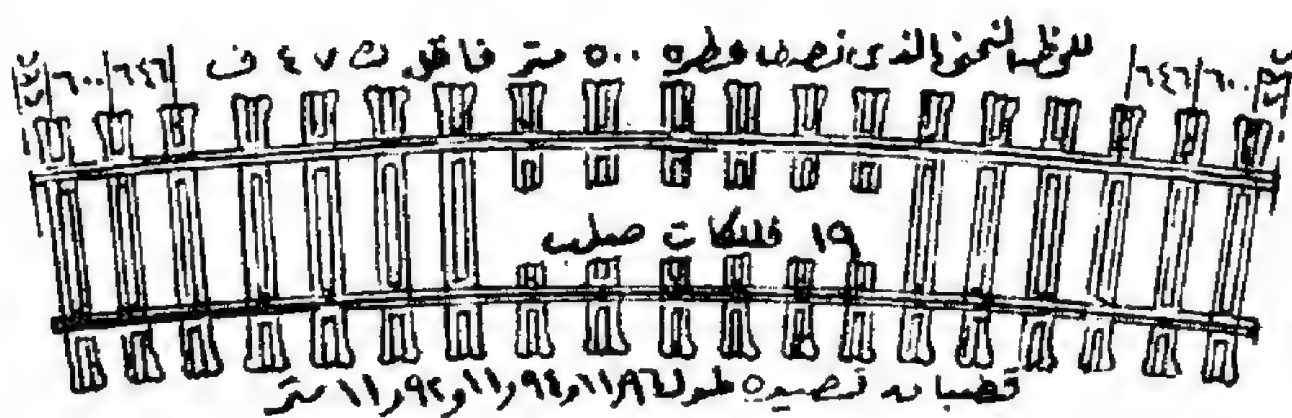 للخط المنحنى الذى نصف قطره ٥٠٠ متر فاقل ت ٤٧ ف
٦٠٠ ٦٤٦
٦٤٦ ٦٠٠
١٩ فلنكات صلب
قضبان قصيره طول ١١٫٩٦ و ١١٫٩٤ و ١١٫٩٢ متر